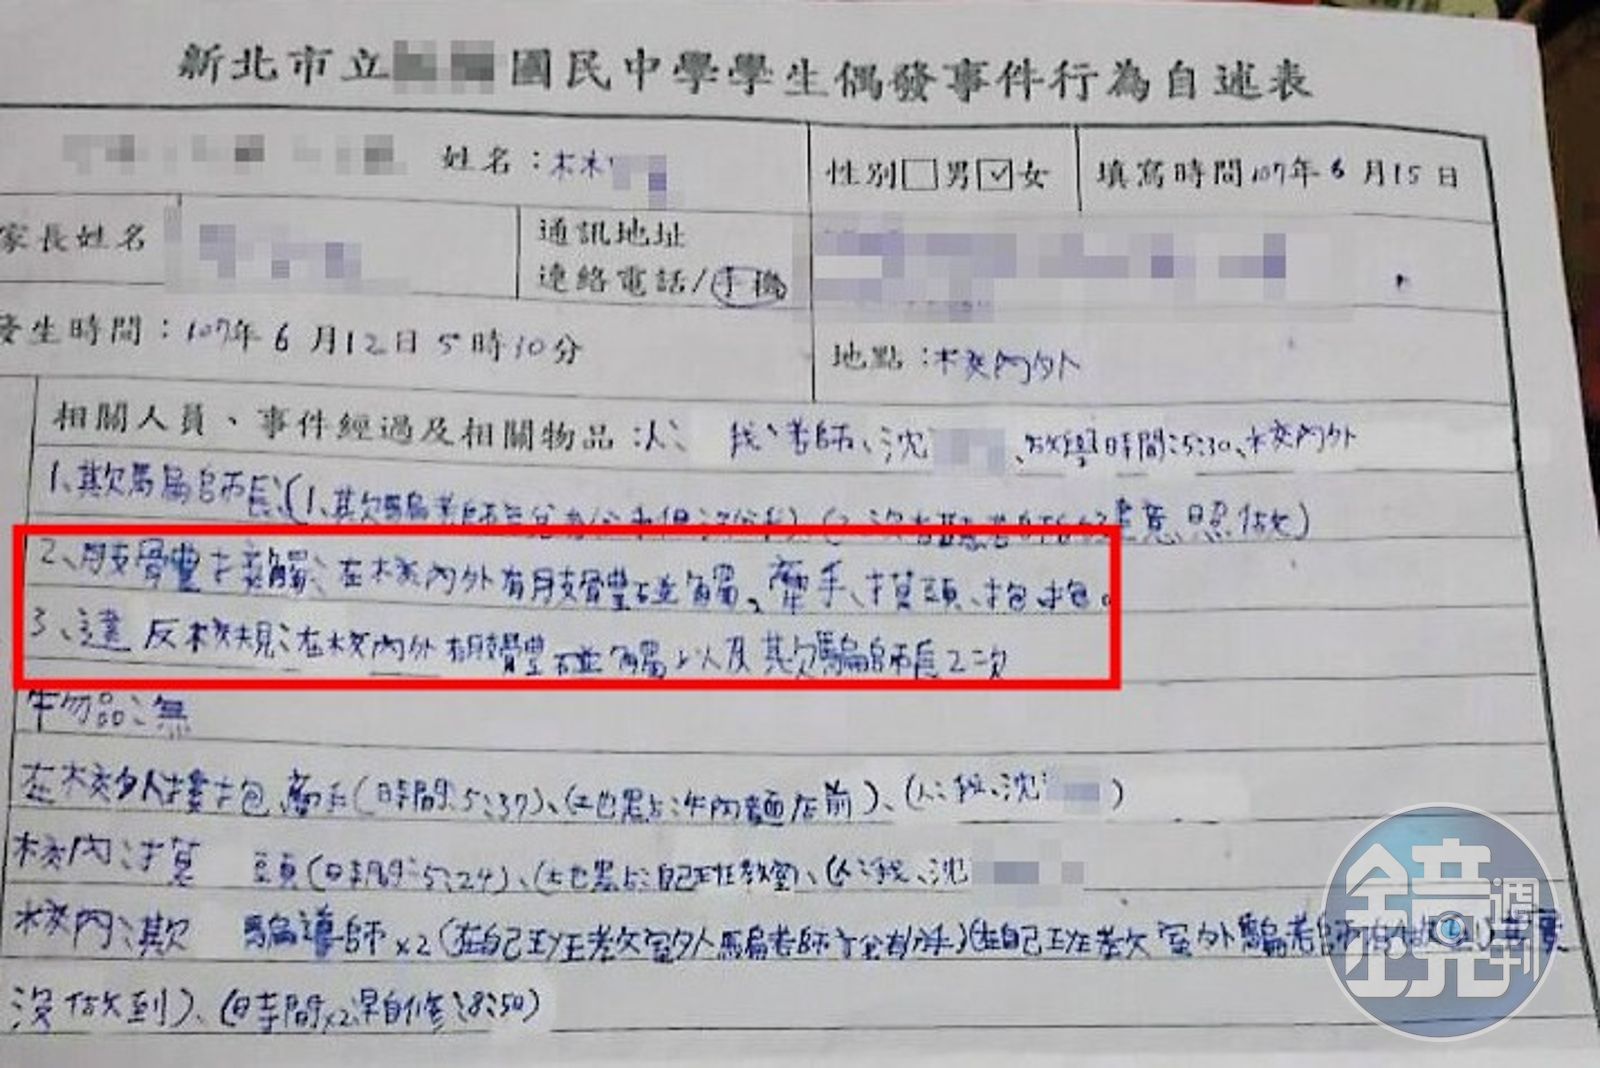 新北市立 國民中學學生偶發事件行為自述表
姓名：林 性別□男☑女 填寫時間107年6月15日
家長姓名 通訊地址
連絡電話/手機
發生時間：107年6月12日5時10分 地點：校內外
相關人員、事件經過及相關物品：人： 我、老師、沈 、放學時間：5:30、校內外
1、欺騙師長：(1、欺騙老師
2、肢體接觸：在校內外有肢體碰觸、牽手、摸頭、抱抱。
3、違反校規：在校內外有肢體碰觸以及欺騙師長2次
物品：無
在校外：摟抱、牽手(時間：5:37)、(地點：牛肉麵店前)、(人：我、沈 )
校內：摸 頭(時間：5:24)、(地點：自己班教室)、(人：我、沈
校內：欺 騙導師x2(在自己班在教室外騙老師 )(在自己班在教室外騙老師有做到)
沒做到)、(時間x2：早自修：8:50)
鏡週刊